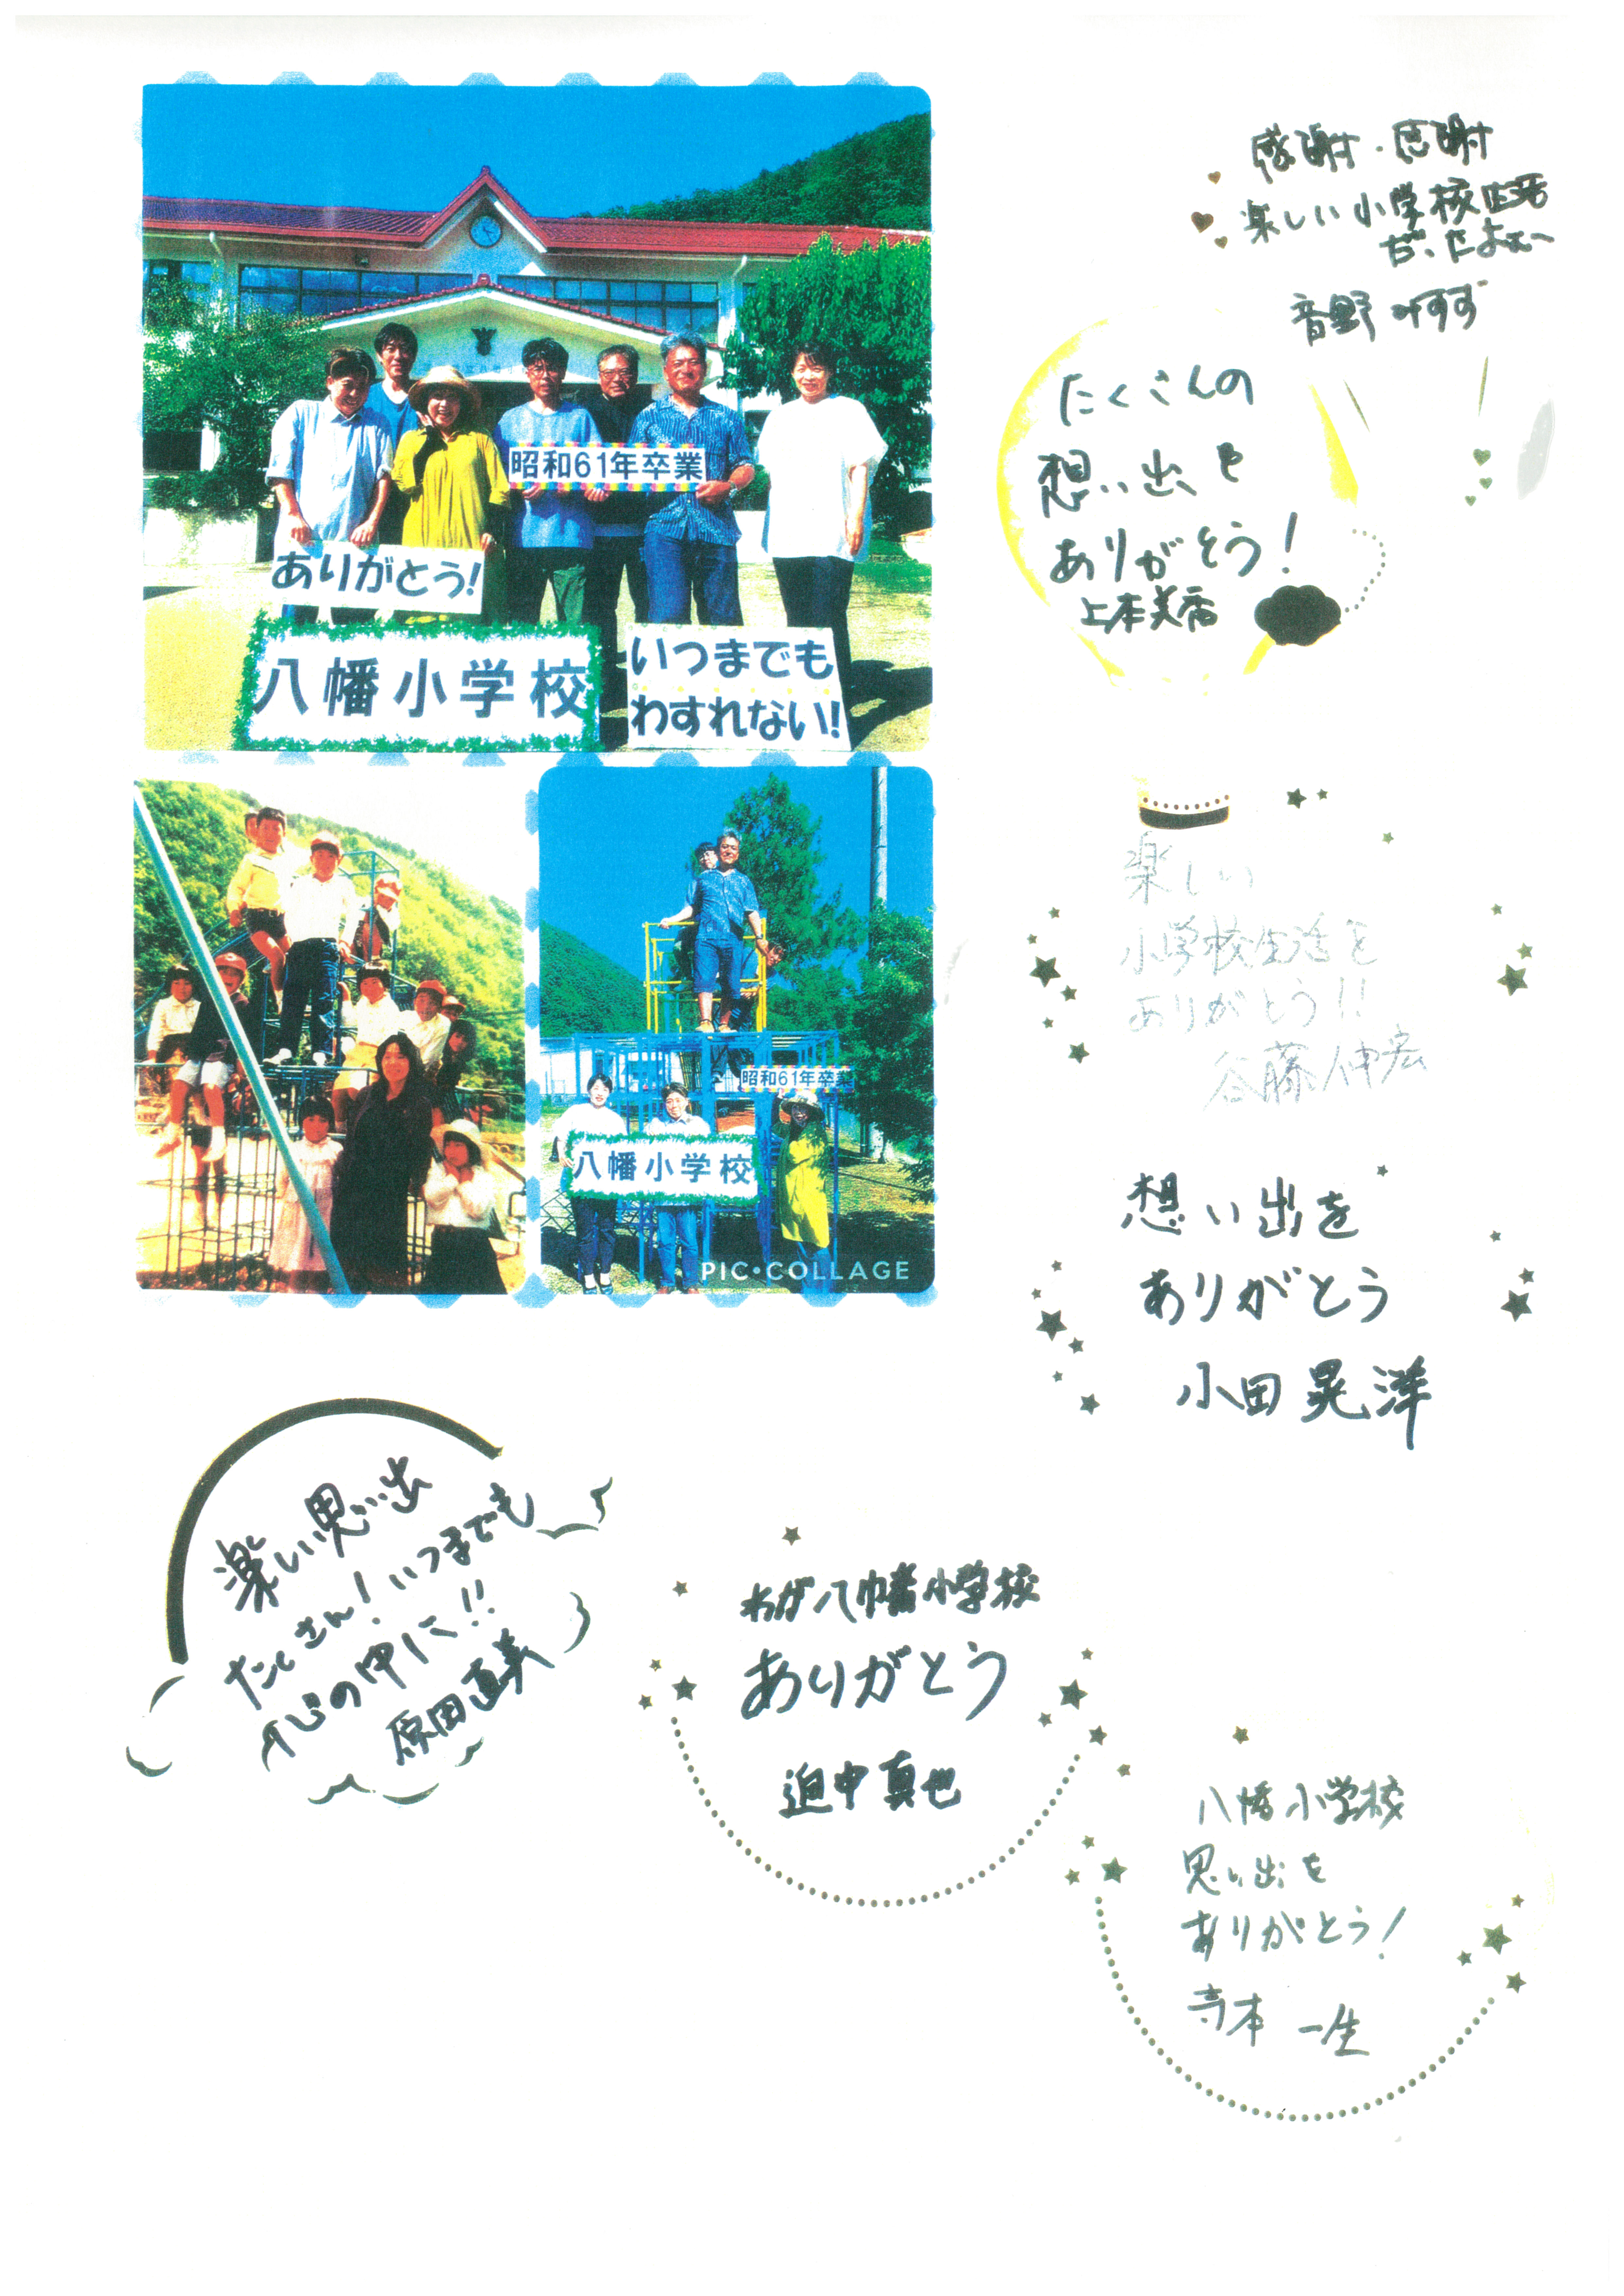 昭和61年卒業
ありがとう!
八幡小学校
いつまでも
わすれない!
昭和61年卒業
八幡小学校
PIC・COLLAGE
感謝・感謝
楽しい小学校生活
だったよねー
音野 みすず
たくさんの
想い出を
ありがとう!
上本美香
楽しい
小学校生活を
ありがとう!!
谷藤伸宏
想い出を
ありがとう
小田晃洋
楽しい思い出
たくさん!いつまでも
心の中に!!
原田直美
わが八幡小学校
ありがとう
迫中真也
八幡小学校
思い出を
ありがとう!
寺本 一生